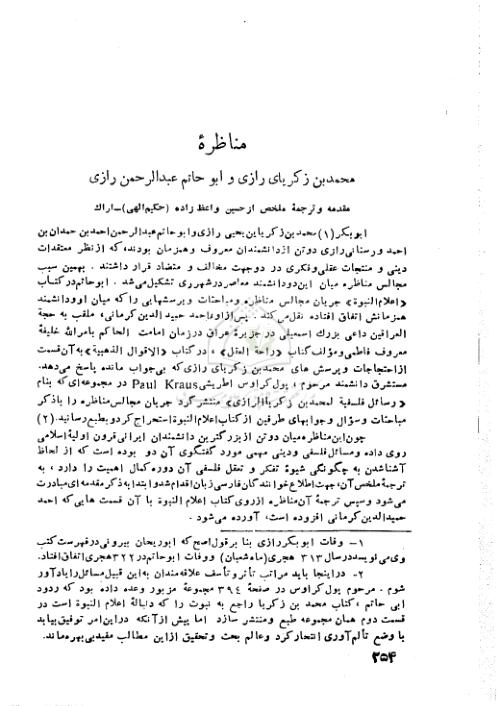 مناظرهٔ
محمدبن زکریای رازی و ابو حاتم عبدالرحمن رازی
مقدمه و ترجمهٔ ملخص از حسین واعظ زاده (حکیم الهی) – اراک
ابوبکر (۱) محمدبن زکریا بن یحیی رازی و ابوحاتم عبدالرحمن احمد بن حمدان بن
احمد ورسنانی رازی دوتن ازدانشمندان معروف وهمزمان بودند، که ازنظر معتقدات
دینی و منتجات عقلی وفکری در دوجهت مخالف و متضاد قرار داشتند . بهمین سبب
مجالس مناظره میان این‌دودانشمند معاصردرشهرری تشکیل‌می‌شد . ابوحاتم‌درکتاب
«اعلام‌النبوة» جریان مجالس مناظره ومباحثات وپرسشهایی را که میان اوودانشمند
همزمانش اتفاق افتاده نقل‌می‌کند . پس‌ازاو، احمد حمیدالدین کرمانی، ملقب به حجة
العراقین داعی بزرك اسمعیلی درجزیرهٔ عراق درزمان امامت الحاکم بامرالله خلیفهٔ
معروف فاطمی ومؤلف کتاب «راحة العقل» ، درکتاب «الاقوال الذهبیة» به‌آن‌قسمت
ازاحتجاجات وپرسش های محمدبن زکریای رازی‌که بی‌جواب مانده پاسخ می‌دهد.
مستشرق دانشمند مرحوم ، پول‌کراوس اطریشی Paul Kraus در مجموعه‌ای که بنام
«رسائل فلسفیة لمحمدبن زکریاالرازی» منتشرکرد جریان مجالس مناظره را باذکر
مباحثات وسؤال وجوابهای طرفین ازکتاب‌اعلام‌النبوة استخراج‌کردوبطبع‌رسانید. (۲)
چون‌این‌مناظره‌میان دوتن ازبزرگترین دانشمندان ایرانی‌قرون اولیهٔ‌اسلامی
روی داده ومسائل فلسفی ودینی مهمی مورد گفتگوی آن دو بوده است که از لحاظ
آشناشدن به چگونگی شیوهٔ تفکر و تعقل فلسفی آن دوره کمال اهمیت را دارد ، به
ترجمهٔ ملخص‌آن، جهت‌اطلاع‌خوانندگان‌فارسی‌زبان‌اقدام‌شدوابتدا به ذکرمقدمه‌ای‌مبادرت
می‌شود وسپس ترجمهٔ آن‌مناظره ازروی‌کتاب اعلام النبوة با آن قسمت هایی‌که احمد
حمیدالدین کرمانی افزوده است، آورده می‌شود .
۱ – وفات ابوبکررازی بنا برقول‌اصح‌که ابوریحان بیرونی‌درفهرست‌کتب
وی‌می‌نویسددرسال ۳۱۳ هجری (ماه‌شعبان) ووفات ابوحاتم‌در۳۲۲هجری‌اتفاق‌افتاد.
۲ – دراینجا باید مراتب تأثر وتأسف علاقه‌مندان به‌این قبیل‌مسائل‌رایادآور
شوم . مرحوم پول‌کراوس در صفحهٔ ۲۹۴ مجموعهٔ مزبور وعده داده بود که ردود
ابی حاتم ، کتاب محمد بن زکریا راجع به نبوت را که دنبالهٔ اعلام النبوة است در
قسمت دوم همان مجموعه طبع ومنتشر سازد اما پیش ازآنکه دراین‌امر توفیق‌بیابد
با وضع تألم‌آوری انتحارکرد وعالم بحث وتحقیق ازاین مطالب مفیدبی‌بهره‌ماند.
۲۵۴